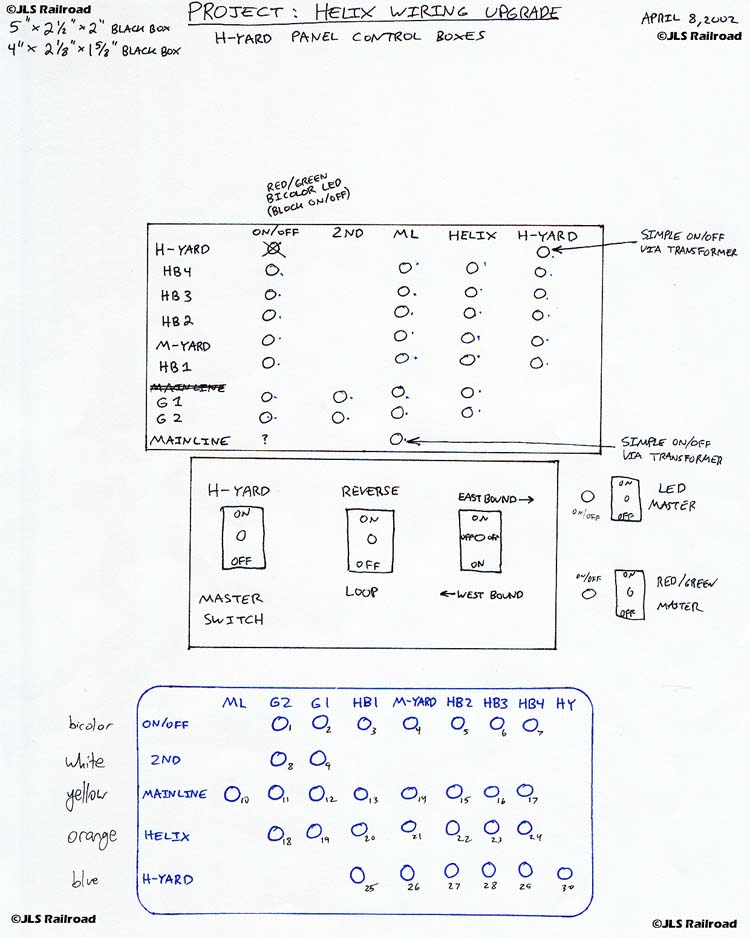 ©JLS Railroad
5" × 2½" × 2" BLACK BOX
4" × 2⅛" × 1⅝" BLACK BOX
PROJECT: HELIX WIRING UPGRADE
H-YARD PANEL CONTROL BOXES
APRIL 8, 2002
©JLS Railroad
RED/GREEN
BICOLOR LED
(BLOCK ON/OFF)
ON/OFF 2ND ML HELIX H-YARD
H-YARD
HB4
HB3
HB2
M-YARD
HB1
MAINLINE
G1
G2
MAINLINE ?
SIMPLE ON/OFF
VIA TRANSFORMER
SIMPLE ON/OFF
VIA TRANSFORMER
H-YARD
ON
OFF
MASTER
SWITCH
REVERSE
ON
OFF
LOOP
EAST BOUND →
ON
OFF OFF
ON
← WEST BOUND
ON/OFF
ON
OFF
LED
MASTER
ON/OFF
ON
OFF
RED/GREEN
MASTER
ML G2 G1 HB1 M-YARD HB2 HB3 HB4 HY
bicolor ON/OFF 1 2 3 4 5 6 7
white 2ND 8 9
yellow MAINLINE 10 11 12 13 14 15 16 17
orange HELIX 18 19 20 21 22 23 24
blue H-YARD 25 26 27 28 29 30
©JLS Railroad
©JLS Railroad